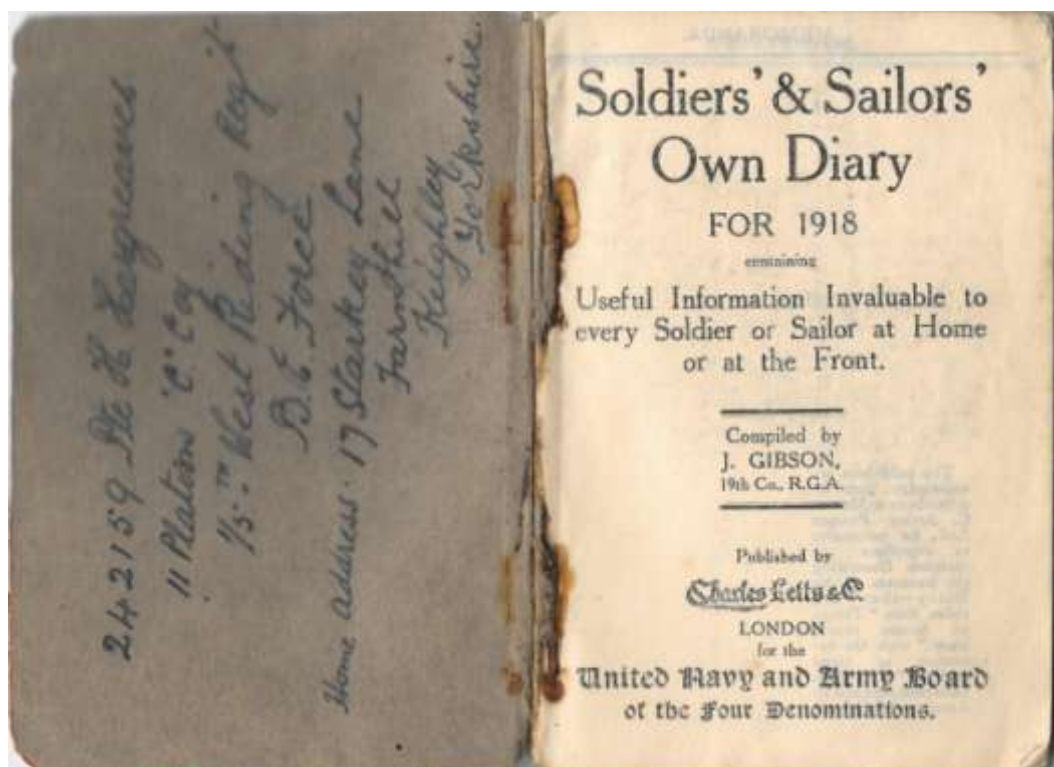 242159 Pte H Hargreaves
11 Platoon 'C' Coy
1/5th West Riding Regt
B.E. Force
Home Address. 17 Starkey Lane
Farnhill
Keighley
Yorkshire.
MEMORANDA.
Soldiers' & Sailors'
Own Diary
FOR 1918
containing
Useful Information Invaluable to
every Soldier or Sailor at Home
or at the Front.
Compiled by
J. GIBSON,
19th Co., R.G.A.
Published by
Charles Letts & Co.
LONDON
for the
United Navy and Army Board
of the Four Denominations.